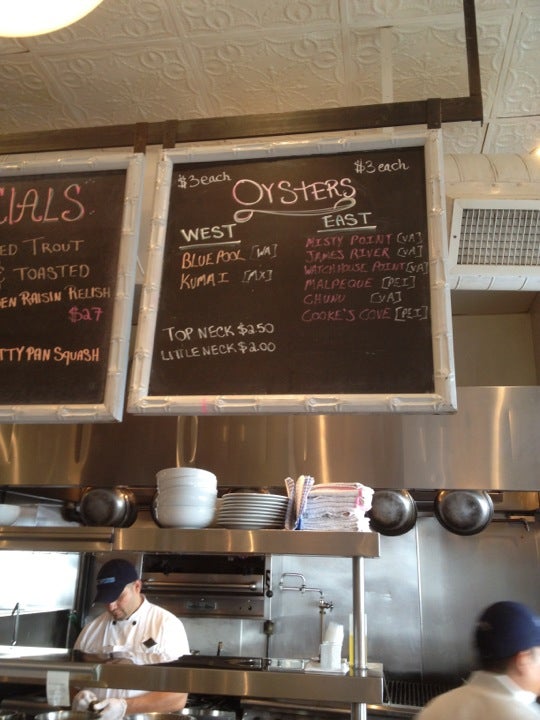 CIALS
ED TROUT
& TOASTED
EN RAISIN RELISH
$27
TTY PAN SQUASH
$3 each
$3 each
OYSTERS
WEST
BLUE POOL [WA]
KUMAI [MX]
EAST
MISTY POINT [VA]
JAMES RIVER [VA]
WATCHHOUSE POINT [VA]
MALPEQUE [PEI]
CHUNU [VA]
COOKE'S COVE [PEI]
TOP NECK $2.50
LITTLE NECK $2.00